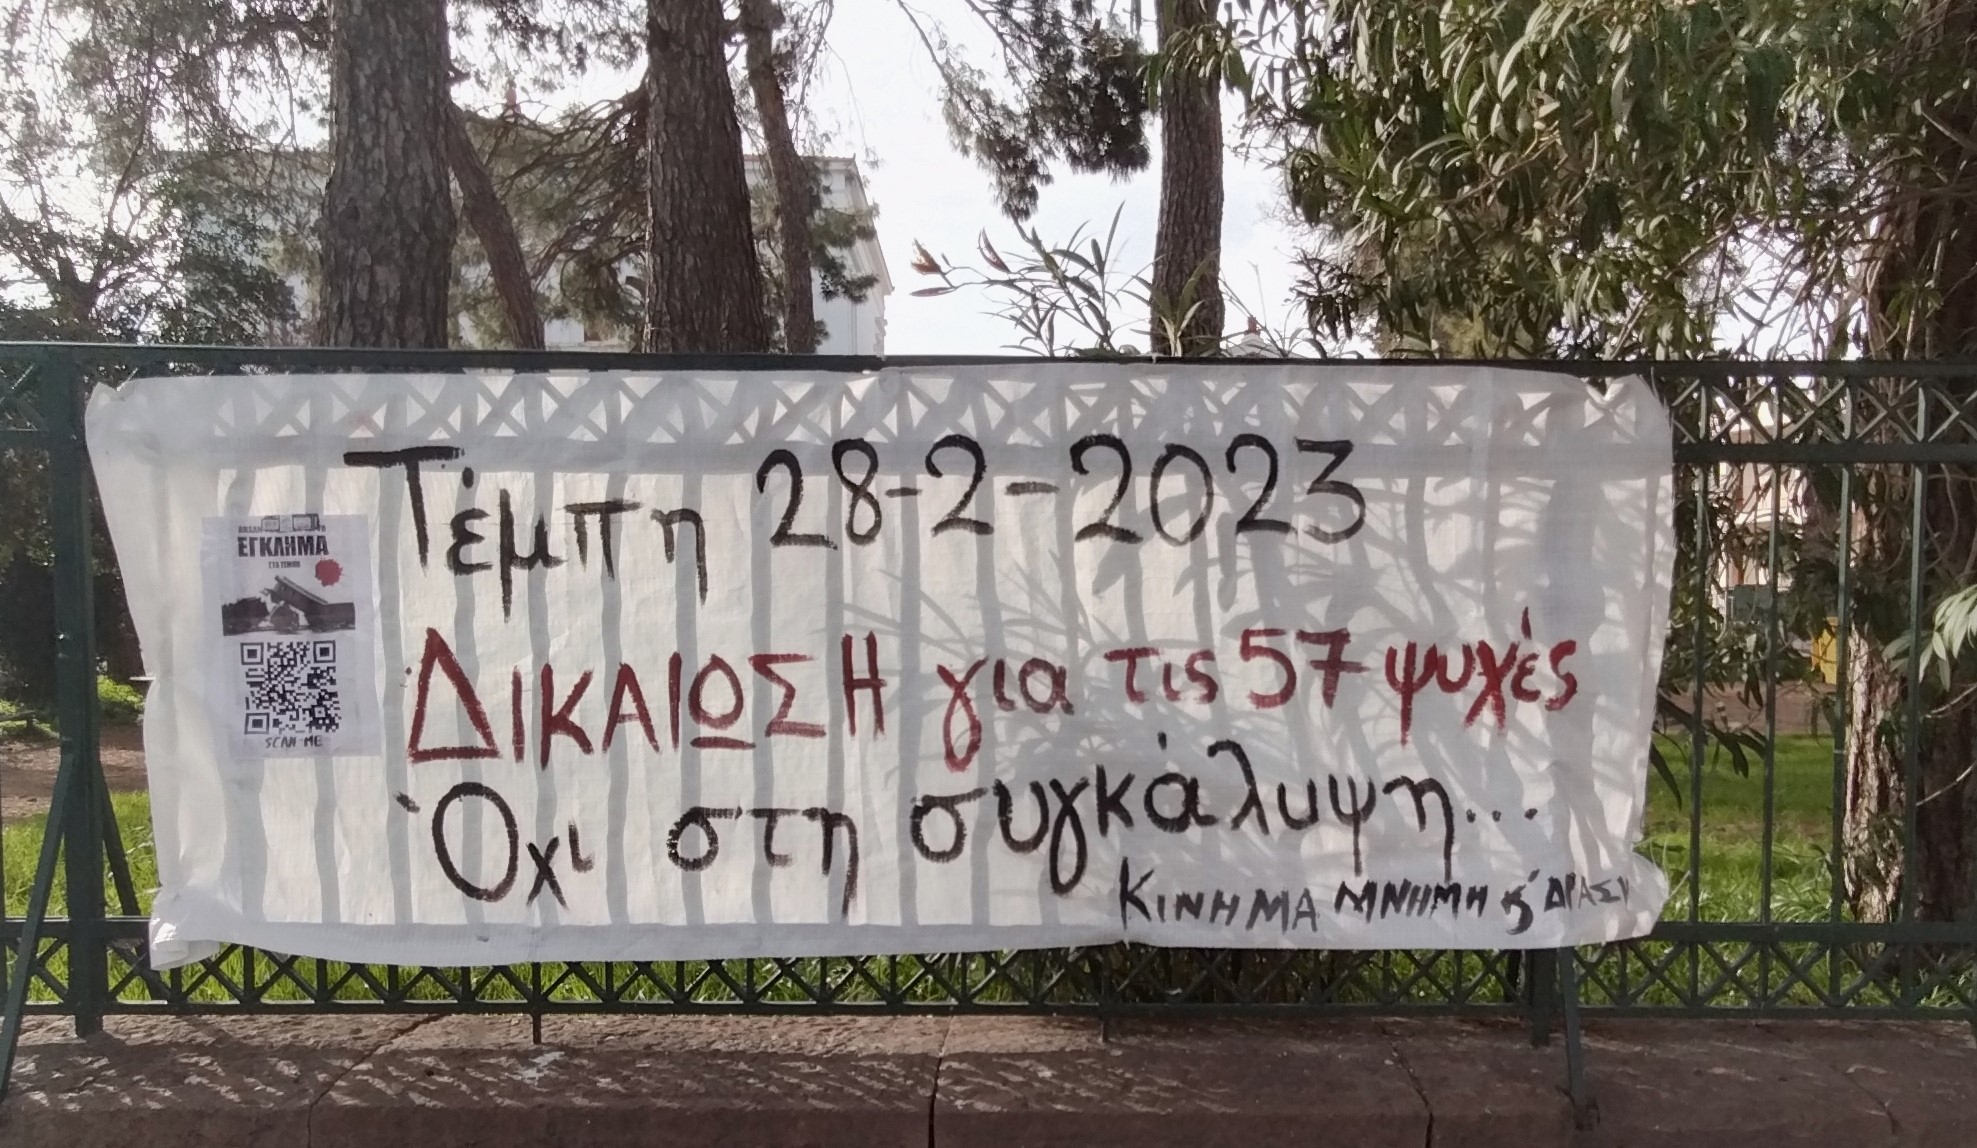 Τέμπη 28-2-2023
ΕΓΚΛΗΜΑ
ΣΤΑ ΤΕΜΠΗ
SCAN ME
ΔΙΚΑΙΩΣΗ για τις 57 ψυχές
Όχι στη συγκάλυψη...
ΚΙΝΗΜΑ ΜΝΗΜΗ κ' ΔΡΑΣΗ